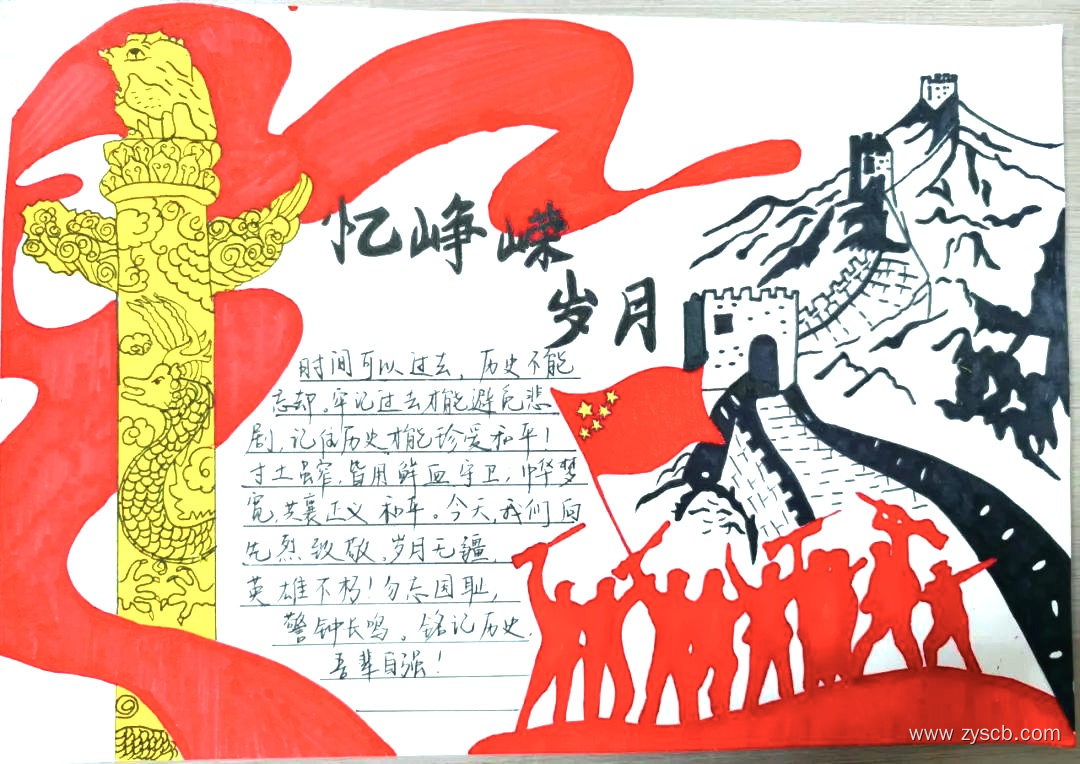 忆峥嵘
岁月
时间可以过去，历史不能
忘却。牢记过去才能避免悲
剧，记住历史才能珍爱和平！
寸土虽窄，皆用鲜血守卫；中华梦
宽，共襄正义和平。今天，我们向
先烈致敬，岁月无疆，
英雄不朽！勿忘国耻，
警钟长鸣。铭记历史，
吾辈自强！
www.zyscb.com